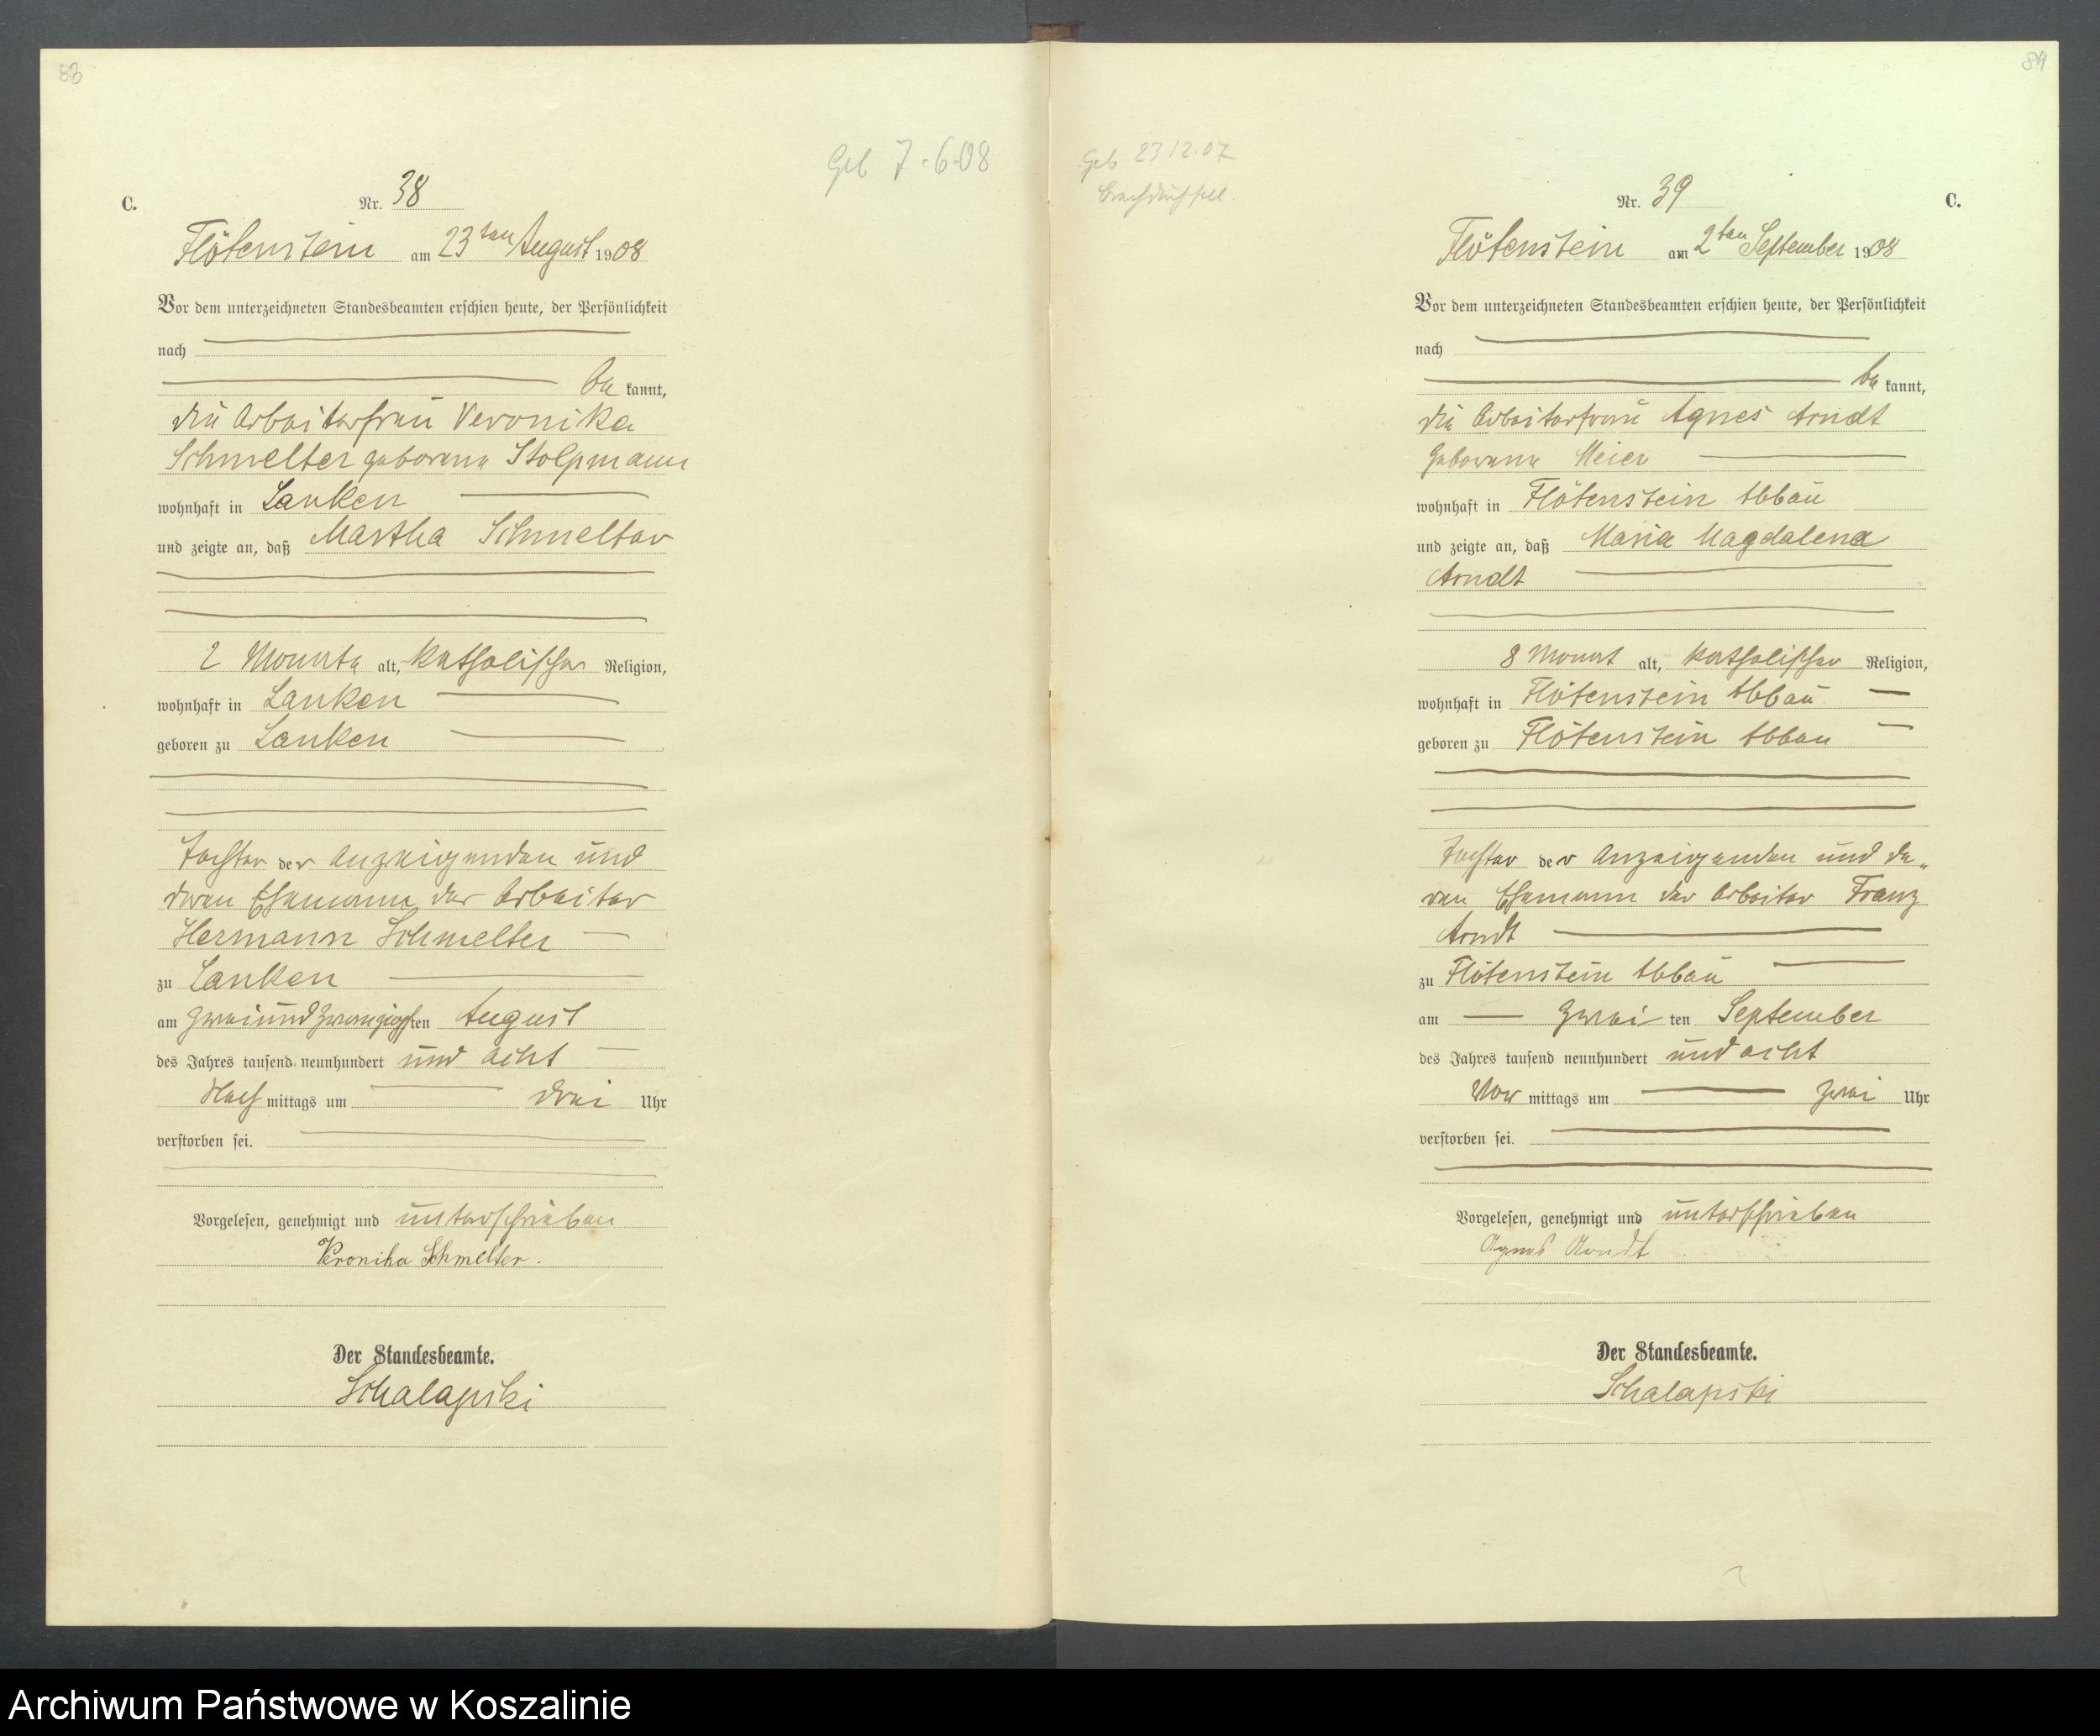 83
Geb 7.6.08
C.
Nr. 38
Flötenstein am 23ten August 1908
Vor dem unterzeichneten Standesbeamten erschien heute, der Persönlichkeit
nach
be kannt,
die Arbeiterfrau Veronika
Schmelter geborene Stolpmann
wohnhaft in Lanken
und zeigte an, daß Martha Schmelter
2 Monate alt, katholischer Religion,
wohnhaft in Lanken
geboren zu Lanken
Tochter der Anzeigenden und
deren Ehemann der Arbeiter
Hermann Schmelter
zu Lanken
am zweiundzwanzigsten August
des Jahres tausend neunhundert und acht
Nach mittags um drei Uhr
verstorben sei.
Vorgelesen, genehmigt und unterschrieben
Veronika Schmelter.
Der Standesbeamte.
Schalapski
84
Geb 23 12.07
C.
Nr. 39
Flötenstein am 2ten September 1908
Vor dem unterzeichneten Standesbeamten erschien heute, der Persönlichkeit
nach
be kannt,
die Arbeiterfrau Agnes Arndt
geborene Meier
wohnhaft in Flötenstein Abbau
und zeigte an, daß Maria Magdalena
Arndt
8 Monat alt, katholischer Religion,
wohnhaft in Flötenstein Abbau
geboren zu Flötenstein Abbau
Tochter der Anzeigenden und de-
ren Ehemann der Arbeiter Franz
Arndt
zu Flötenstein Abbau
am zwei ten September
des Jahres tausend neunhundert und acht
Vor mittags um zwei Uhr
verstorben sei.
Vorgelesen, genehmigt und unterschrieben
Agnes Arndt
Der Standesbeamte.
Schalapski
Archiwum Państwowe w Koszalinie